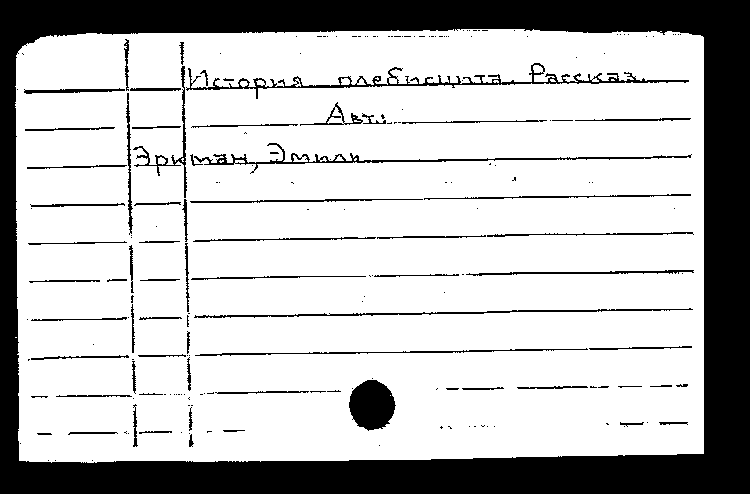 История плебисцита. Рассказ.
Авт.:
Эркман, Эмиль